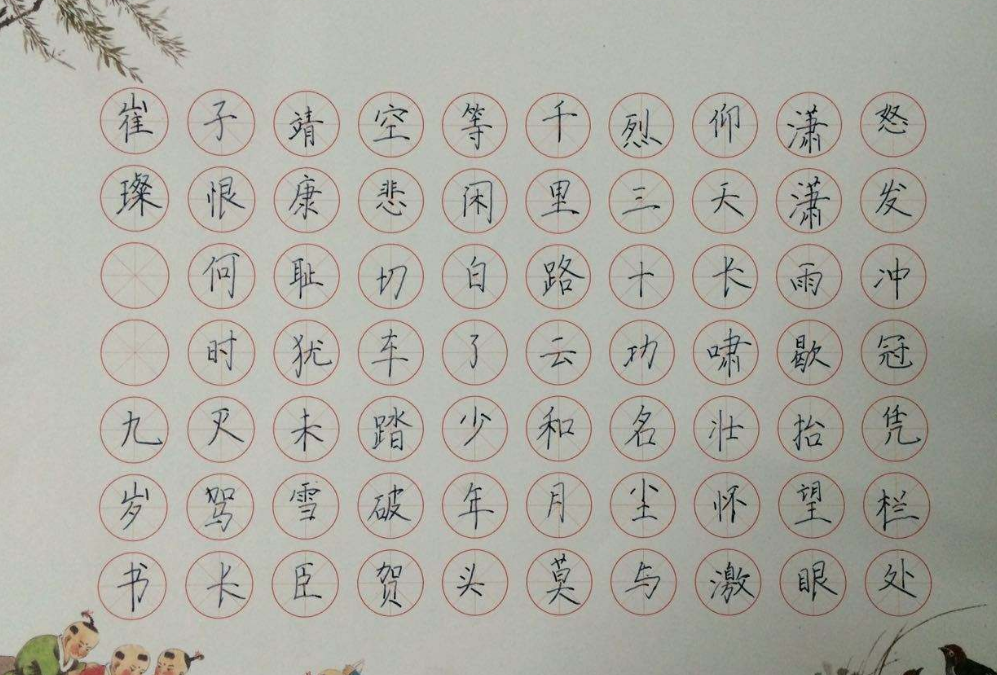 怒发冲冠凭栏处
潇潇雨歇抬望眼
仰天长啸壮怀激
烈三十功名尘与
千里路云和月莫
等闲白了少年头
空悲切车踏破贺
靖康耻犹未雪臣
子恨何时灭驾长
崔璨 九岁书